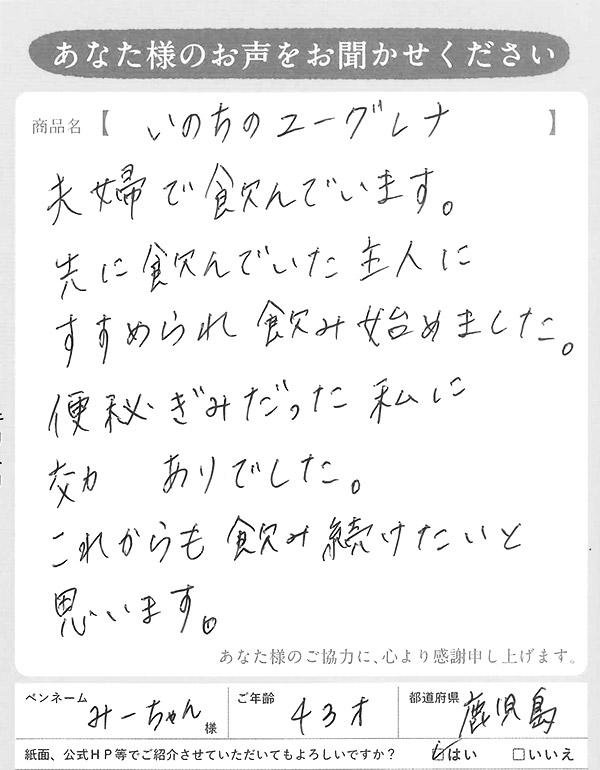 あなた様のお声をお聞かせください
商品名【 いのちのユーグレナ 】
夫婦で飲んでいます。
先に飲んでいた主人に
すすめられ飲み始めました。
便秘ぎみだった私に
効 ありでした。
これからも飲み続けたいと
思います。
あなた様のご協力に、心より感謝申し上げます。
ペンネーム みーちゃん 様 ご年齢 43才 都道府県 鹿児島
紙面、公式HP等でご紹介させていただいてもよろしいですか? ☑はい □いいえ